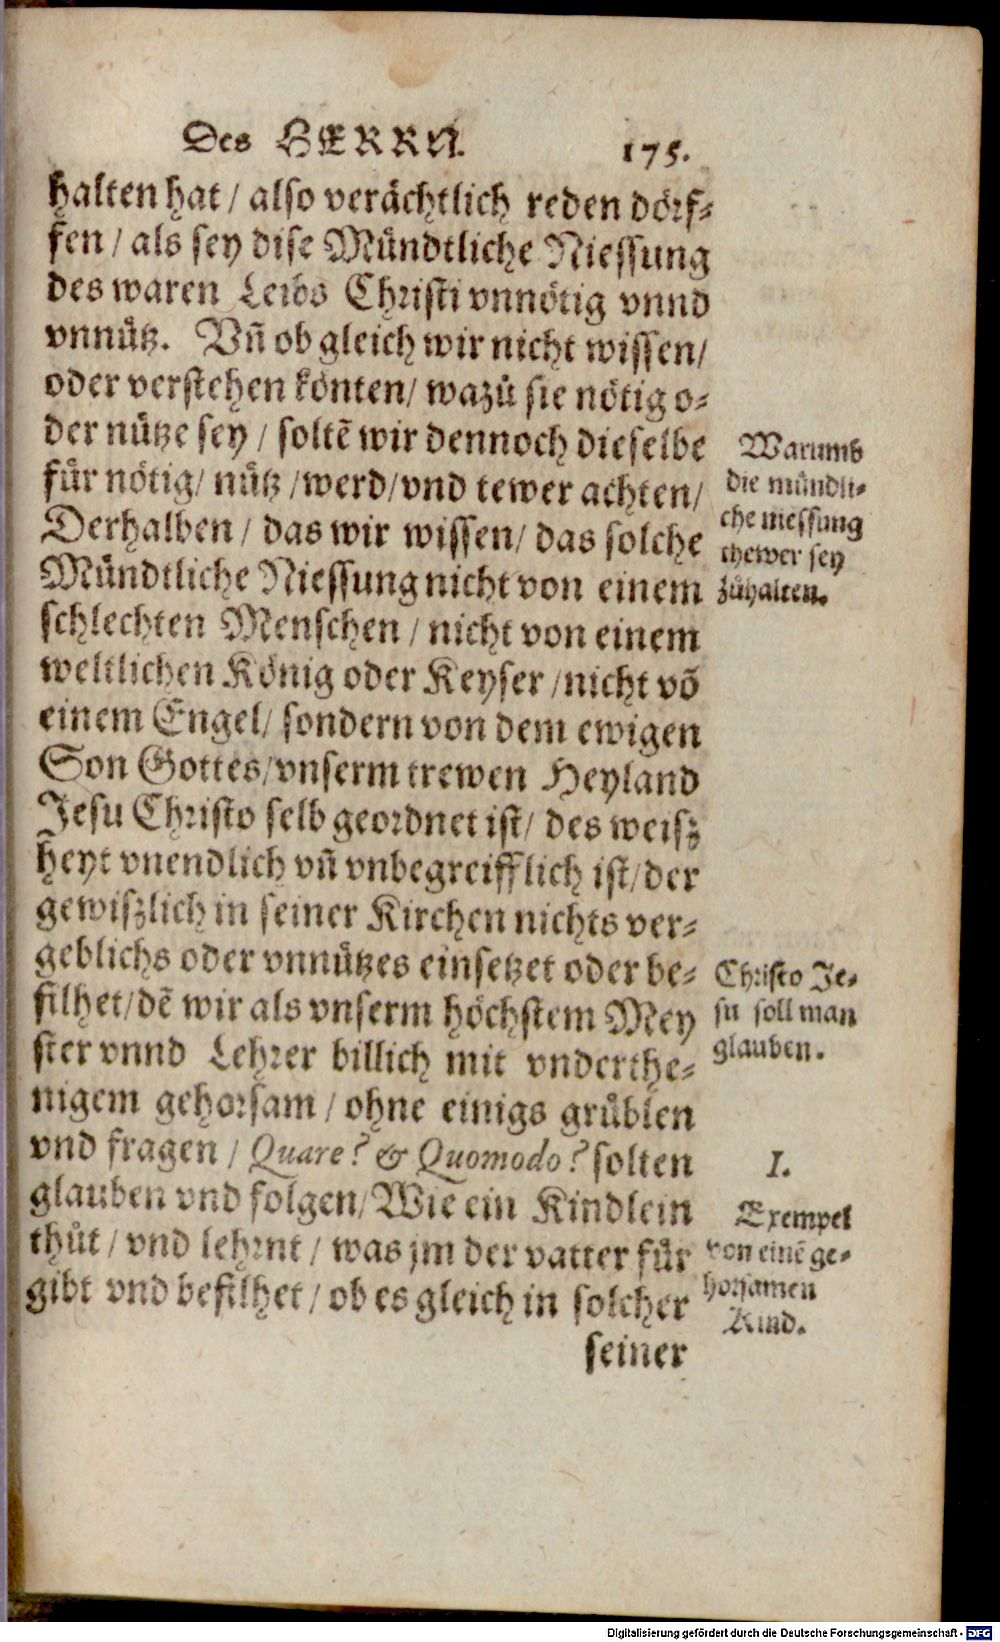 Des HERRN. 175.
halten hat / also verächtlich reden dörf-
fen / als sey dise Mündtliche Niessung
des waren Leibs Christi vnnötig vnnd
vnnütz. Vñ ob gleich wir nicht wissen/
oder verstehen könten/ wazů sie nötig o-
der nütze sey / soltẽ wir dennoch dieselbe
für nötig/ nütz /werd/vnd tewer achten/
Derhalben / das wir wissen/ das solche
Mündtliche Niessung nicht von einem
schlechten Menschen / nicht von einem
weltlichen König oder Keyser /nicht võ
einem Engel/ sondern von dem ewigen
Son Gottes/vnserm trewen Heyland
Jesu Christo selb geordnet ist/ des weisz
heyt vnendlich vñ vnbegreifflich ist/der
gewiszlich in seiner Kirchen nichts ver-
geblichs oder vnnützes einsetzet oder be-
filhet/dẽ wir als vnserm höchstem Mey
ster vnnd Lehrer billich mit vnderthe-
nigem gehorsam / ohne einigs grüblen
vnd fragen / Quare? & Quomodo? solten
glauben vnd folgen/Wie ein Kindlein
thůt / vnd lehrnt / was jm der vatter für
gibt vnd befilhet / ob es gleich in solcher
seiner
Warumb
die mündli-
che niessung
thewer sey
zůhalten.
Christo Je-
su soll man
glauben.
I.
Exempel
von einẽ ge-
horsamen
Kind.
Digitalisierung gefördert durch die Deutsche Forschungsgemeinschaft - DFG